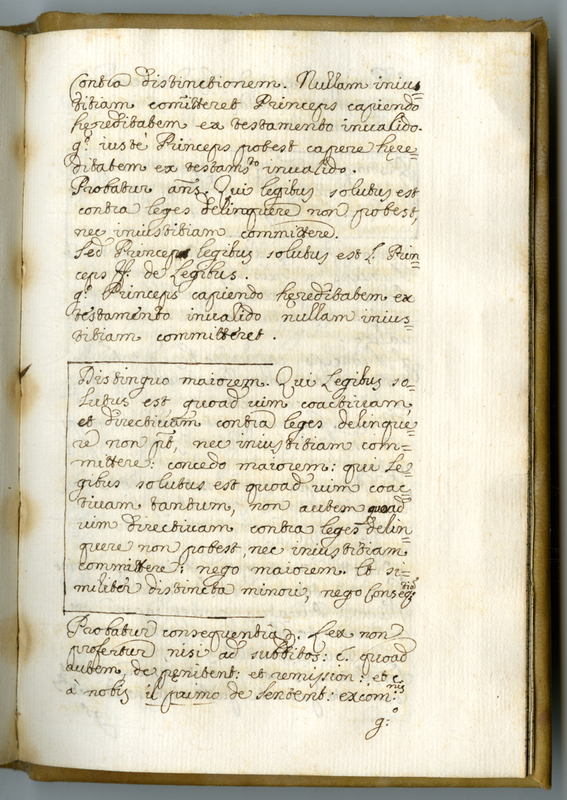 Contra distinctionem. Nullam inius=
titiam com̃itteret Princeps capiendo
hęreditatem ex testamento inualido.
gº. iustè Princeps potest capere hęre=
ditatem ex testamᵗᵒ inualido.
Probatur añs. Qui legibus solutus est
contra leges delinquere non potest,
nec iniustitiam committere.
Sed Princeps legibus solutus est l. Prin=
ceps ff. de Legibus.
gº. Princeps capiendo hęreditatem ex
testamento inualido nullam inius=
titiam committeret.
Distinguo maiorem. Qui Legibus so=
lutus est quoad uim coactiuam
et directiuam contra leges delinque=
re non põt, nec iniustitiam com=
mittere: concedo maiorem: qui Le=
gibus solutus est quoad uim coac=
tiuam tantum, non autem quoad
uim directiuam contra leges delin=
quere non potest nec iniustitiam
committere: nego maiorem. Et si=
militer distincta minori, nego Conseqᵗⁱᵃ
Probatur consequentia. Lex non
profertur nisi ad subditos: c. quoad
autem, de pęnitent: et remission: et c.
à nobis il primo de Sentent: excomⁿⁱˢ
gº: